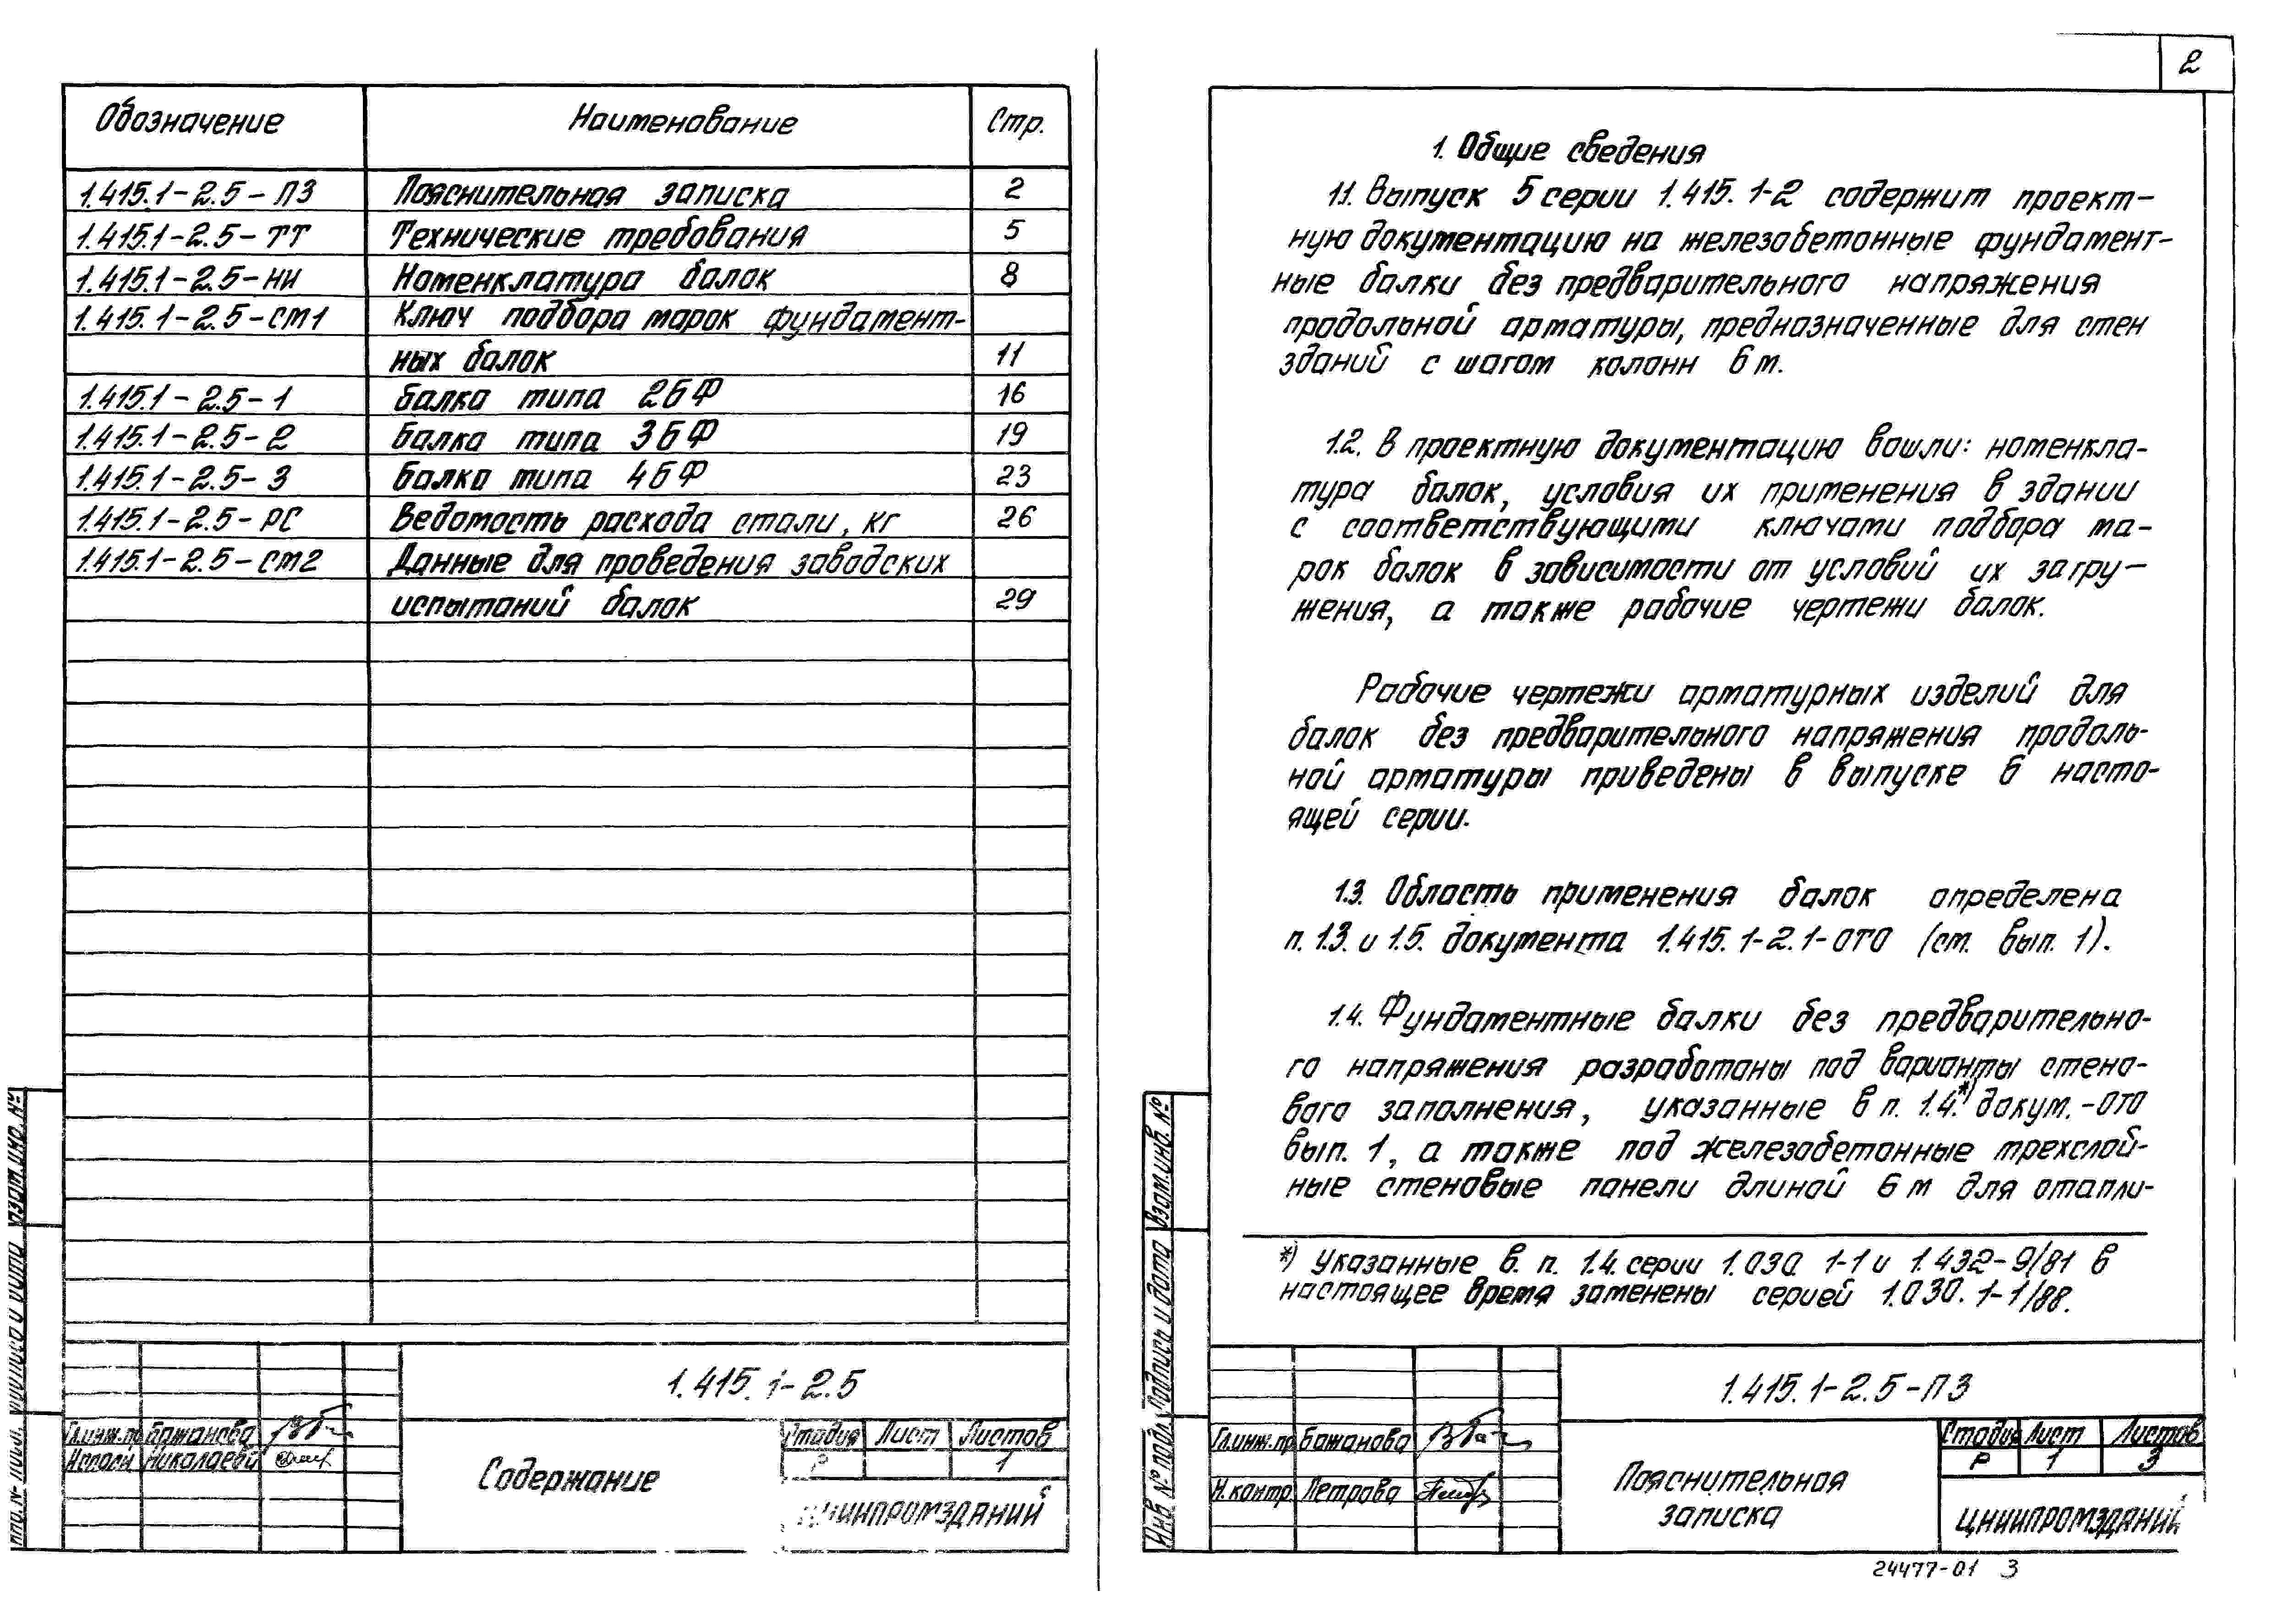 Обозначение Наименование Стр.
1.415.1-2.5-ПЗ Пояснительная записка 2
1.415.1-2.5-ТТ Технические требования 5
1.415.1-2.5-НИ Номенклатура балок 8
1.415.1-2.5-СМ1 Ключ подбора марок фундамент-
ных балок 11
1.415.1-2.5-1 Балка типа 2БФ 16
1.415.1-2.5-2 Балка типа 3БФ 19
1.415.1-2.5-3 Балка типа 4БФ 23
1.415.1-2.5-РС Ведомость расхода стали, кг 26
1.415.1-2.5-СМ2 Данные для проведения заводских
испытаний балок 29
Взам.инв.№
Подпись и дата
Инв.№ подл.
1.415.1-2.5
Гл.инж.пр Бажанова
Николаева
Содержание
Стадия Лист Листов
Р 1
ЦНИИПРОМЗДАНИЙ
2
1. Общие сведения
1.1. Выпуск 5 серии 1.415.1-2 содержит проект-
ную документацию на железобетонные фундамент-
ные балки без предварительного напряжения
продольной арматуры, предназначенные для стен
зданий с шагом колонн 6 м.
1.2. В проектную документацию вошли: номенкла-
тура балок, условия их применения в здании
с соответствующими ключами подбора ма-
рок балок в зависимости от условий их загру-
жения, а также рабочие чертежи балок.
Рабочие чертежи арматурных изделий для
балок без предварительного напряжения продоль-
ной арматуры приведены в выпуске 6 насто-
ящей серии.
1.3. Область применения балок определена
п. 1.3. и 1.5. документа 1.415.1-2.1-ОТО (см. вып. 1).
1.4. Фундаментные балки без предварительно-
го напряжения разработаны под варианты стено-
вого заполнения, указанные в п. 1.4.*) докум.-ОТО
вып. 1, а также под железобетонные трехслой-
ные стеновые панели длиной 6 м для отапли-
*) Указанные в. п. 1.4. серии 1.030.1-1 и 1.432-9/81 в
настоящее время заменены серией 1.030.1-1/88.
Взам.инв.№
Подпись и дата
Инв № подл.
1.415.1-2.5-ПЗ
Гл.инж.пр Бажанова
Н.контр. Петрова
Пояснительная
записка
Стадия Лист Листов
Р 1 3
ЦНИИПРОМЗДАНИЙ
24477-01 3